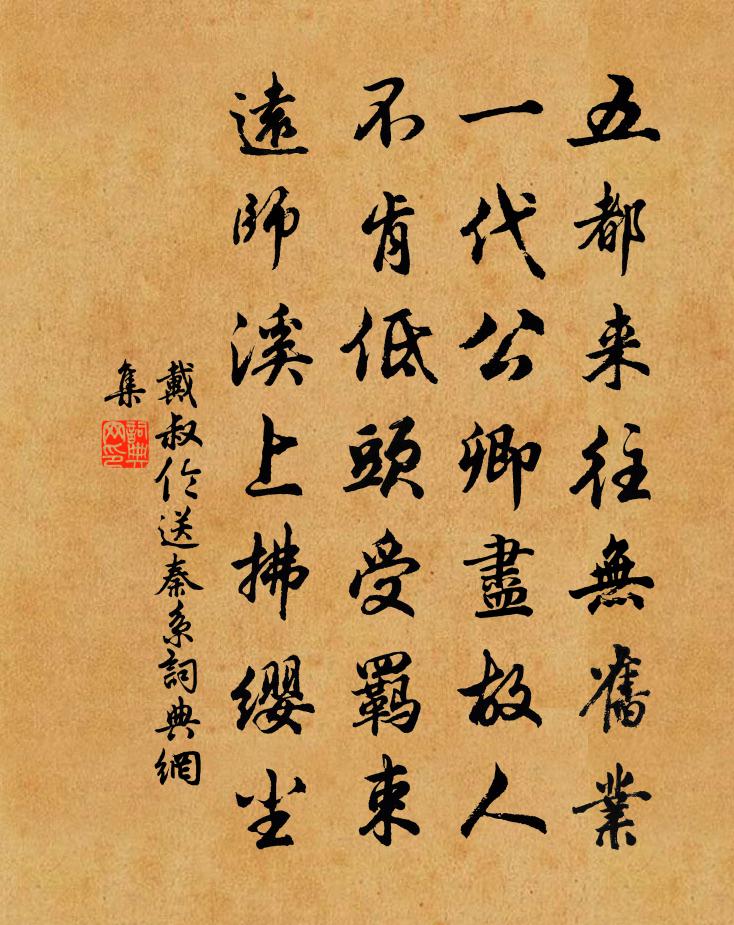 五都来往無舊業
一代公卿盡故人
不肯低頭受羈束
遠師溪上拂纓尘
戴叔伦送秦系詞典網
集
詞典
网印